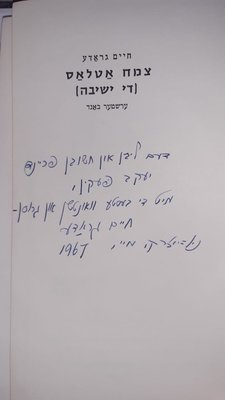 חיים גראַדע
צמח אַטלאַס
(די ישיבה)
ערשטער באַנד
דעם ליבן און חשובן פריינד
יעקב פעקין,
מיט די בעסטע וואונטשן און גרוסן-
חיים גראַדע
מיי 1967